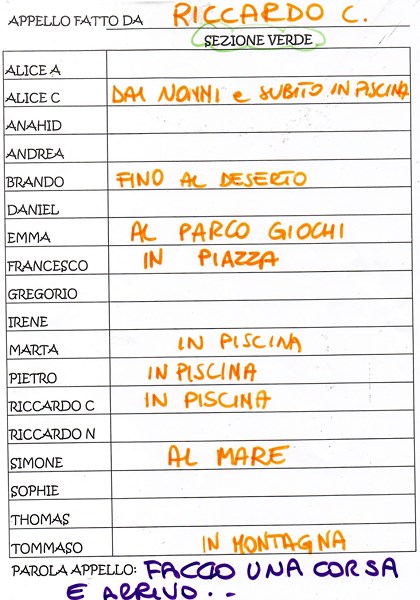 APPELLO FATTO DA RICCARDO C.
SEZIONE VERDE
ALICE A
ALICE C DAI NONNI e SUBITO IN PISCINA
ANAHID
ANDREA
BRANDO FINO AL DESERTO
DANIEL
EMMA AL PARCO GIOCHI
FRANCESCO IN PIAZZA
GREGORIO
IRENE
MARTA IN PISCINA
PIETRO IN PISCINA
RICCARDO C IN PISCINA
RICCARDO N
SIMONE AL MARE
SOPHIE
THOMAS
TOMMASO IN MONTAGNA
PAROLA APPELLO: FACCIO UNA CORSA
E ARRIVO..